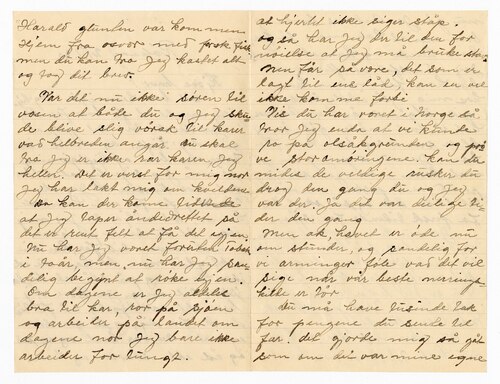 Harald gtunlun var kommen
hjem fra osvor med frosk fisk
men du kan tro jeg kastet alt
og tog dit brev.
Var det nu ikke søren til
vosen at både du og jeg sku
de blive slig vorak til karer
vad helbreden angår. Du skal
tro jeg er ikke når karen, jeg
heller. Det er verst for mig nor
jeg har lakt mig om kvelden
Da kan der komme
at jeg taper åndedrettet så
det er rent felt at få det igjen.
Nu har jeg voret foruten tobak
i to år men nu har jeg
delig begynt at røke igjen.
Om dagene er jeg aldeles
bra til kar, ror på sjøen
og arbeiler på landet om
dagene nor jeg bare ikke
arbeider for tungt.
at hjertet ikke siger ståp.
og så har jeg Dr til den for
nøielse at jeg må bruke
Men får så vore, det som er
lagt til ens låd, kan en vel
ikke komme forbi
Vis du har voret i Norge så
tror jeg enda at vi kunde
ro på olsokgrunden og prø
ve storanoringene. kan du
mindes de veldige rusker du
drog den gang du og jeg
var der. Ja det var deilige ti
der den gang
Men ak, havet er øde nu
om stunder, og sandelig for
vi arminger føle vad det vil
sige når vår beste nærings
kilde er tør
du må have tusinde tak
for pengene du sendte til
far. det gjorde mig så gåt
som om der var mine egne